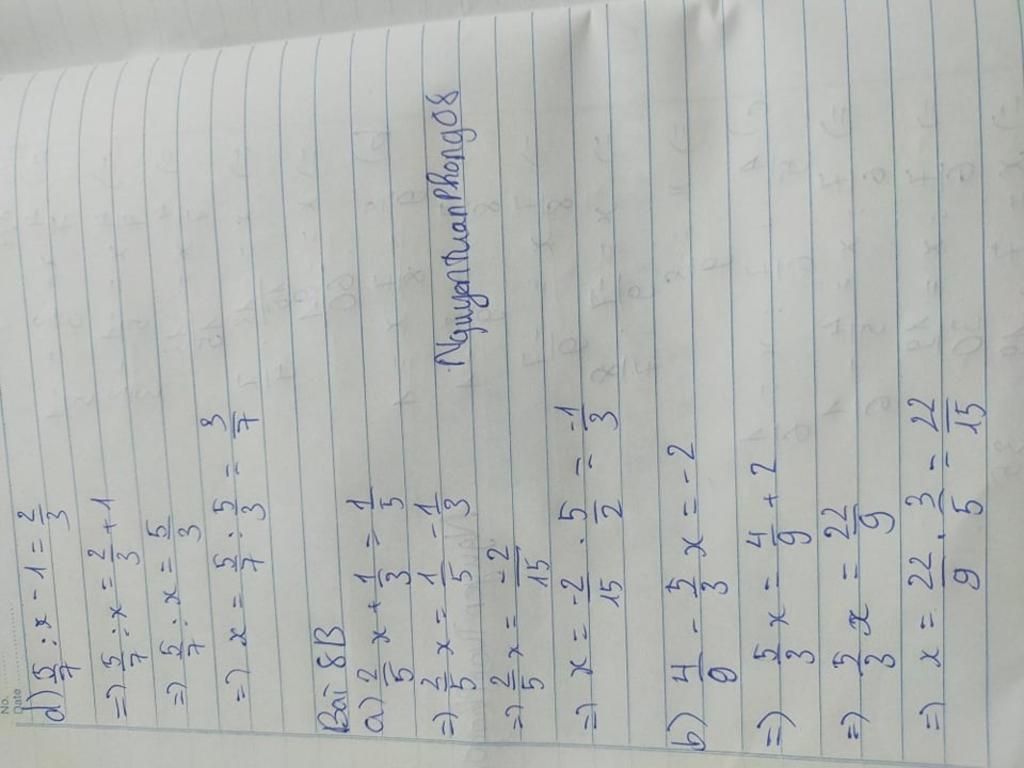 No.
Date
d) 5/7 : x - 1 = 2/3
=) 5/7 : x = 2/3 + 1
=) 5/7 : x = 5/3
=) x = 5/7 : 5/3 = 3/7
Bài 8B
a) 2/5 x + 1/3 = 1/5
=) 2/5 x = 1/5 - 1/3
=) 2/5 x = -2/15
=) x = -2/15 . 5/2 = -1/3
NguyenTuanPhong08
b) 4/9 - 5/3 x = -2
=) 5/3 x = 4/9 + 2
=) 5/3 x = 22/9
=) x = 22/9 . 3/5 = 22/15